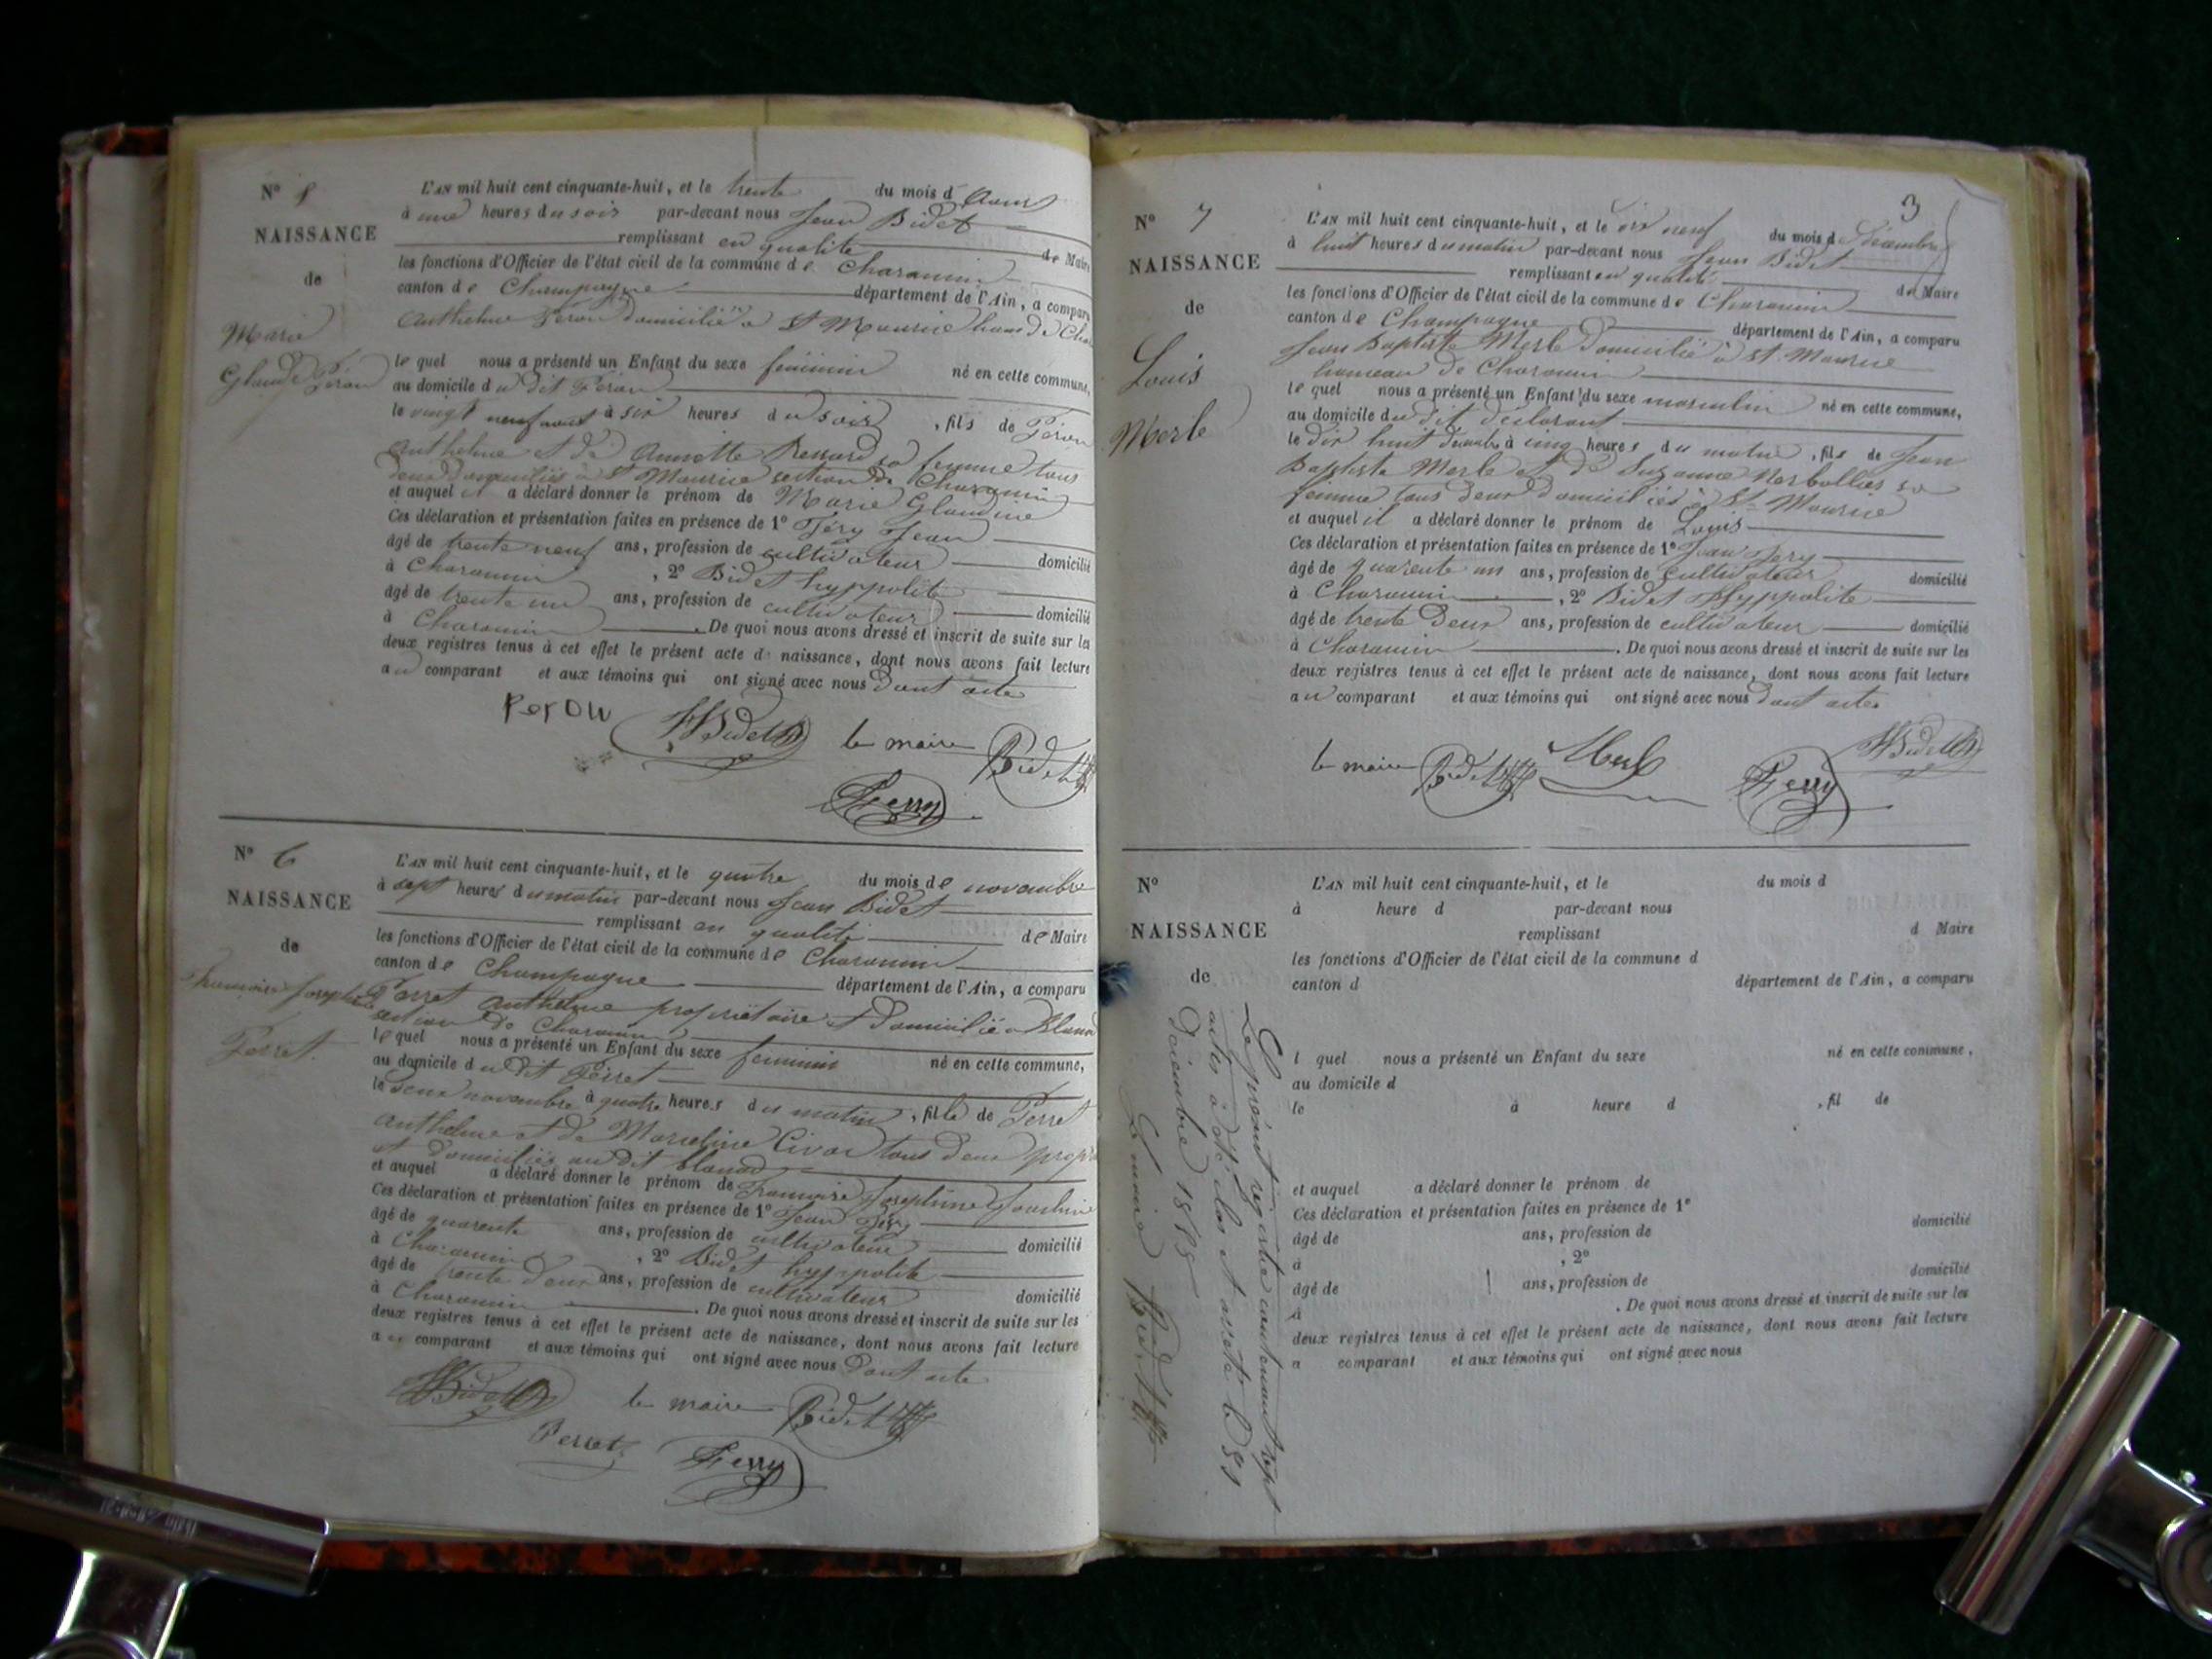 N° 5
NAISSANCE
de
Marie
Glaudi Péron
L'AN mil huit cent cinquante-huit, et le trente du mois d'Aout
à une heures du soir par-devant nous Jean Bidet
remplissant en qualité de Maire
les fonctions d'Officier de l'état civil de la commune de Charancin
canton de Champagne département de l'Ain, a comparu
Anthelme Péron domicilié à St Maurice ham de Cha
le quel nous a présenté un Enfant du sexe féminin né en cette commune,
au domicile du dit Péron
le vingt neuf aout à six heures du soir, fils de Péron
Anthelme et de Annette sa femme tous
deux domiciliés à St Maurice section de Charancin
et auquel il a déclaré donner le prénom de Marie Glaudine
Ces déclaration et présentation faites en présence de 1° Féry Jean
âgé de trente neuf ans, profession de cultivateur domicilié
à Charancin, 2° Bidet hyppolite
âgé de trente un ans, profession de cultivateur domicilié
à Charancin. De quoi nous avons dressé et inscrit de suite sur les
deux registres tenus à cet effet le présent acte de naissance, dont nous avons fait lecture
au comparant et aux témoins qui ont signé avec nous Dont acte
Peron HBidet le maire Bidet
Ferry
N° 6
NAISSANCE
de
françoise Josephine
Perret
L'AN mil huit cent cinquante-huit, et le quatre du mois de novembre
à sept heures du matin par-devant nous Jean Bidet
remplissant en qualité de Maire
les fonctions d'Officier de l'état civil de la commune de Charancin
canton de Champagne département de l'Ain, a comparu
Perret Anthelme propriétaire et domicilié à Blanod
section de Charancin
le quel nous a présenté un Enfant du sexe féminin né en cette commune,
au domicile du dit Perret
le deux novembre à quatre heures du matin, fille de Perret
Anthelme et de Marceline tous deux propr
et domiciliés au dit blanod
et auquel a déclaré donner le prénom de françoise Josephine
Ces déclaration et présentation faites en présence de 1° Jean Féry
âgé de quarente ans, profession de cultivateur domicilié
à Charancin, 2° Bidet hyppolite
âgé de trente deux ans, profession de cultivateur domicilié
à Charancin. De quoi nous avons dressé et inscrit de suite sur les
deux registres tenus à cet effet le présent acte de naissance, dont nous avons fait lecture
au comparant et aux témoins qui ont signé avec nous Dont acte
HBidet le maire Bidet
Perret Ferry
3
N° 7
NAISSANCE
de
Louis
Merle
L'AN mil huit cent cinquante-huit, et le dix neuf du mois de Décembre
à huit heures du matin par-devant nous Jean Bidet
remplissant en qualité de Maire
les fonctions d'Officier de l'état civil de la commune de Charancin
canton de Champagne département de l'Ain, a comparu
Jean Baptiste Merle domicilié à St Maurice
hameau de Charancin
le quel nous a présenté un Enfant du sexe masculin né en cette commune,
au domicile du dit déclarant
le dix huit decembre à cinq heures du matin, fils de Jean
Baptiste Merle et de Suzanne sa
femme tous deux domiciliés à St Maurice
et auquel il a déclaré donner le prénom de Louis
Ces déclaration et présentation faites en présence de 1° Jean Fery
âgé de quarente un ans, profession de cultivateur domicilié
à Charancin, 2° Bidet Hyppolite
âgé de trente deux ans, profession de cultivateur domicilié
à Charancin. De quoi nous avons dressé et inscrit de suite sur les
deux registres tenus à cet effet le présent acte de naissance, dont nous avons fait lecture
au comparant et aux témoins qui ont signé avec nous Dont acte
le maire Bidet Merle Ferry HBidet
N°
NAISSANCE
de
L'AN mil huit cent cinquante-huit, et le du mois d
à heure d par-devant nous
remplissant d Maire
les fonctions d'Officier de l'état civil de la commune d
canton d département de l'Ain, a comparu
l quel nous a présenté un Enfant du sexe né en cette commune,
au domicile d
le à heure d, fil de
et auquel a déclaré donner le prénom de
Ces déclaration et présentation faites en présence de 1°
âgé de ans, profession de domicilié
à, 2°
âgé de ans, profession de domicilié
à. De quoi nous avons dressé et inscrit de suite sur les
deux registres tenus à cet effet le présent acte de naissance, dont nous avons fait lecture
a comparant et aux témoins qui ont signé avec nous
Le présent registre contenant sept
actes a été clos et arreté le 31
Décembre 1858
Le maire Bidet